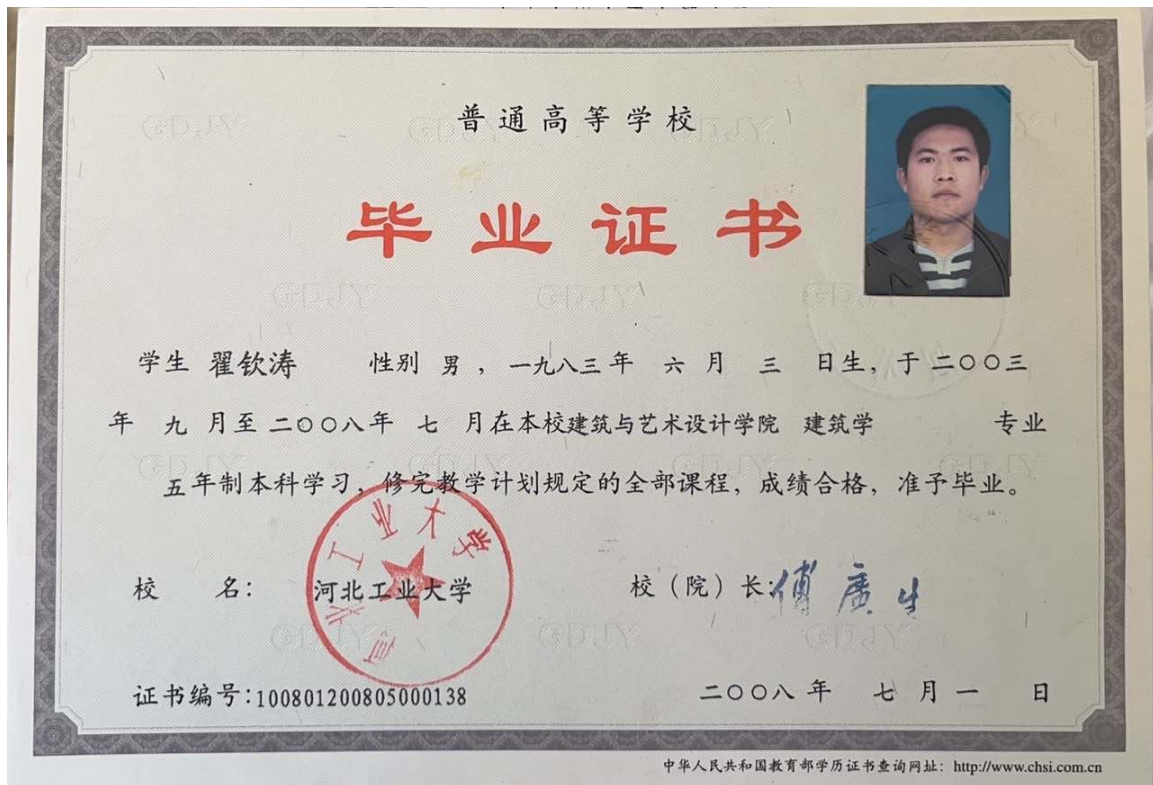 普通高等学校
毕业证书
学生 翟钦涛 性别 男 ，一九八三年 六 月 三 日生，于二〇〇三
年 九 月至二〇〇八年 七 月在本校建筑与艺术设计学院 建筑学 专业
五年制本科学习，修完教学计划规定的全部课程，成绩合格，准予毕业。
河北工业大学
校 名： 河北工业大学 校（院）长：傅廣生
证书编号:100801200805000138 二〇〇八年 七 月 一 日
中华人民共和国教育部学历证书查询网址：http://www.chsi.com.cn